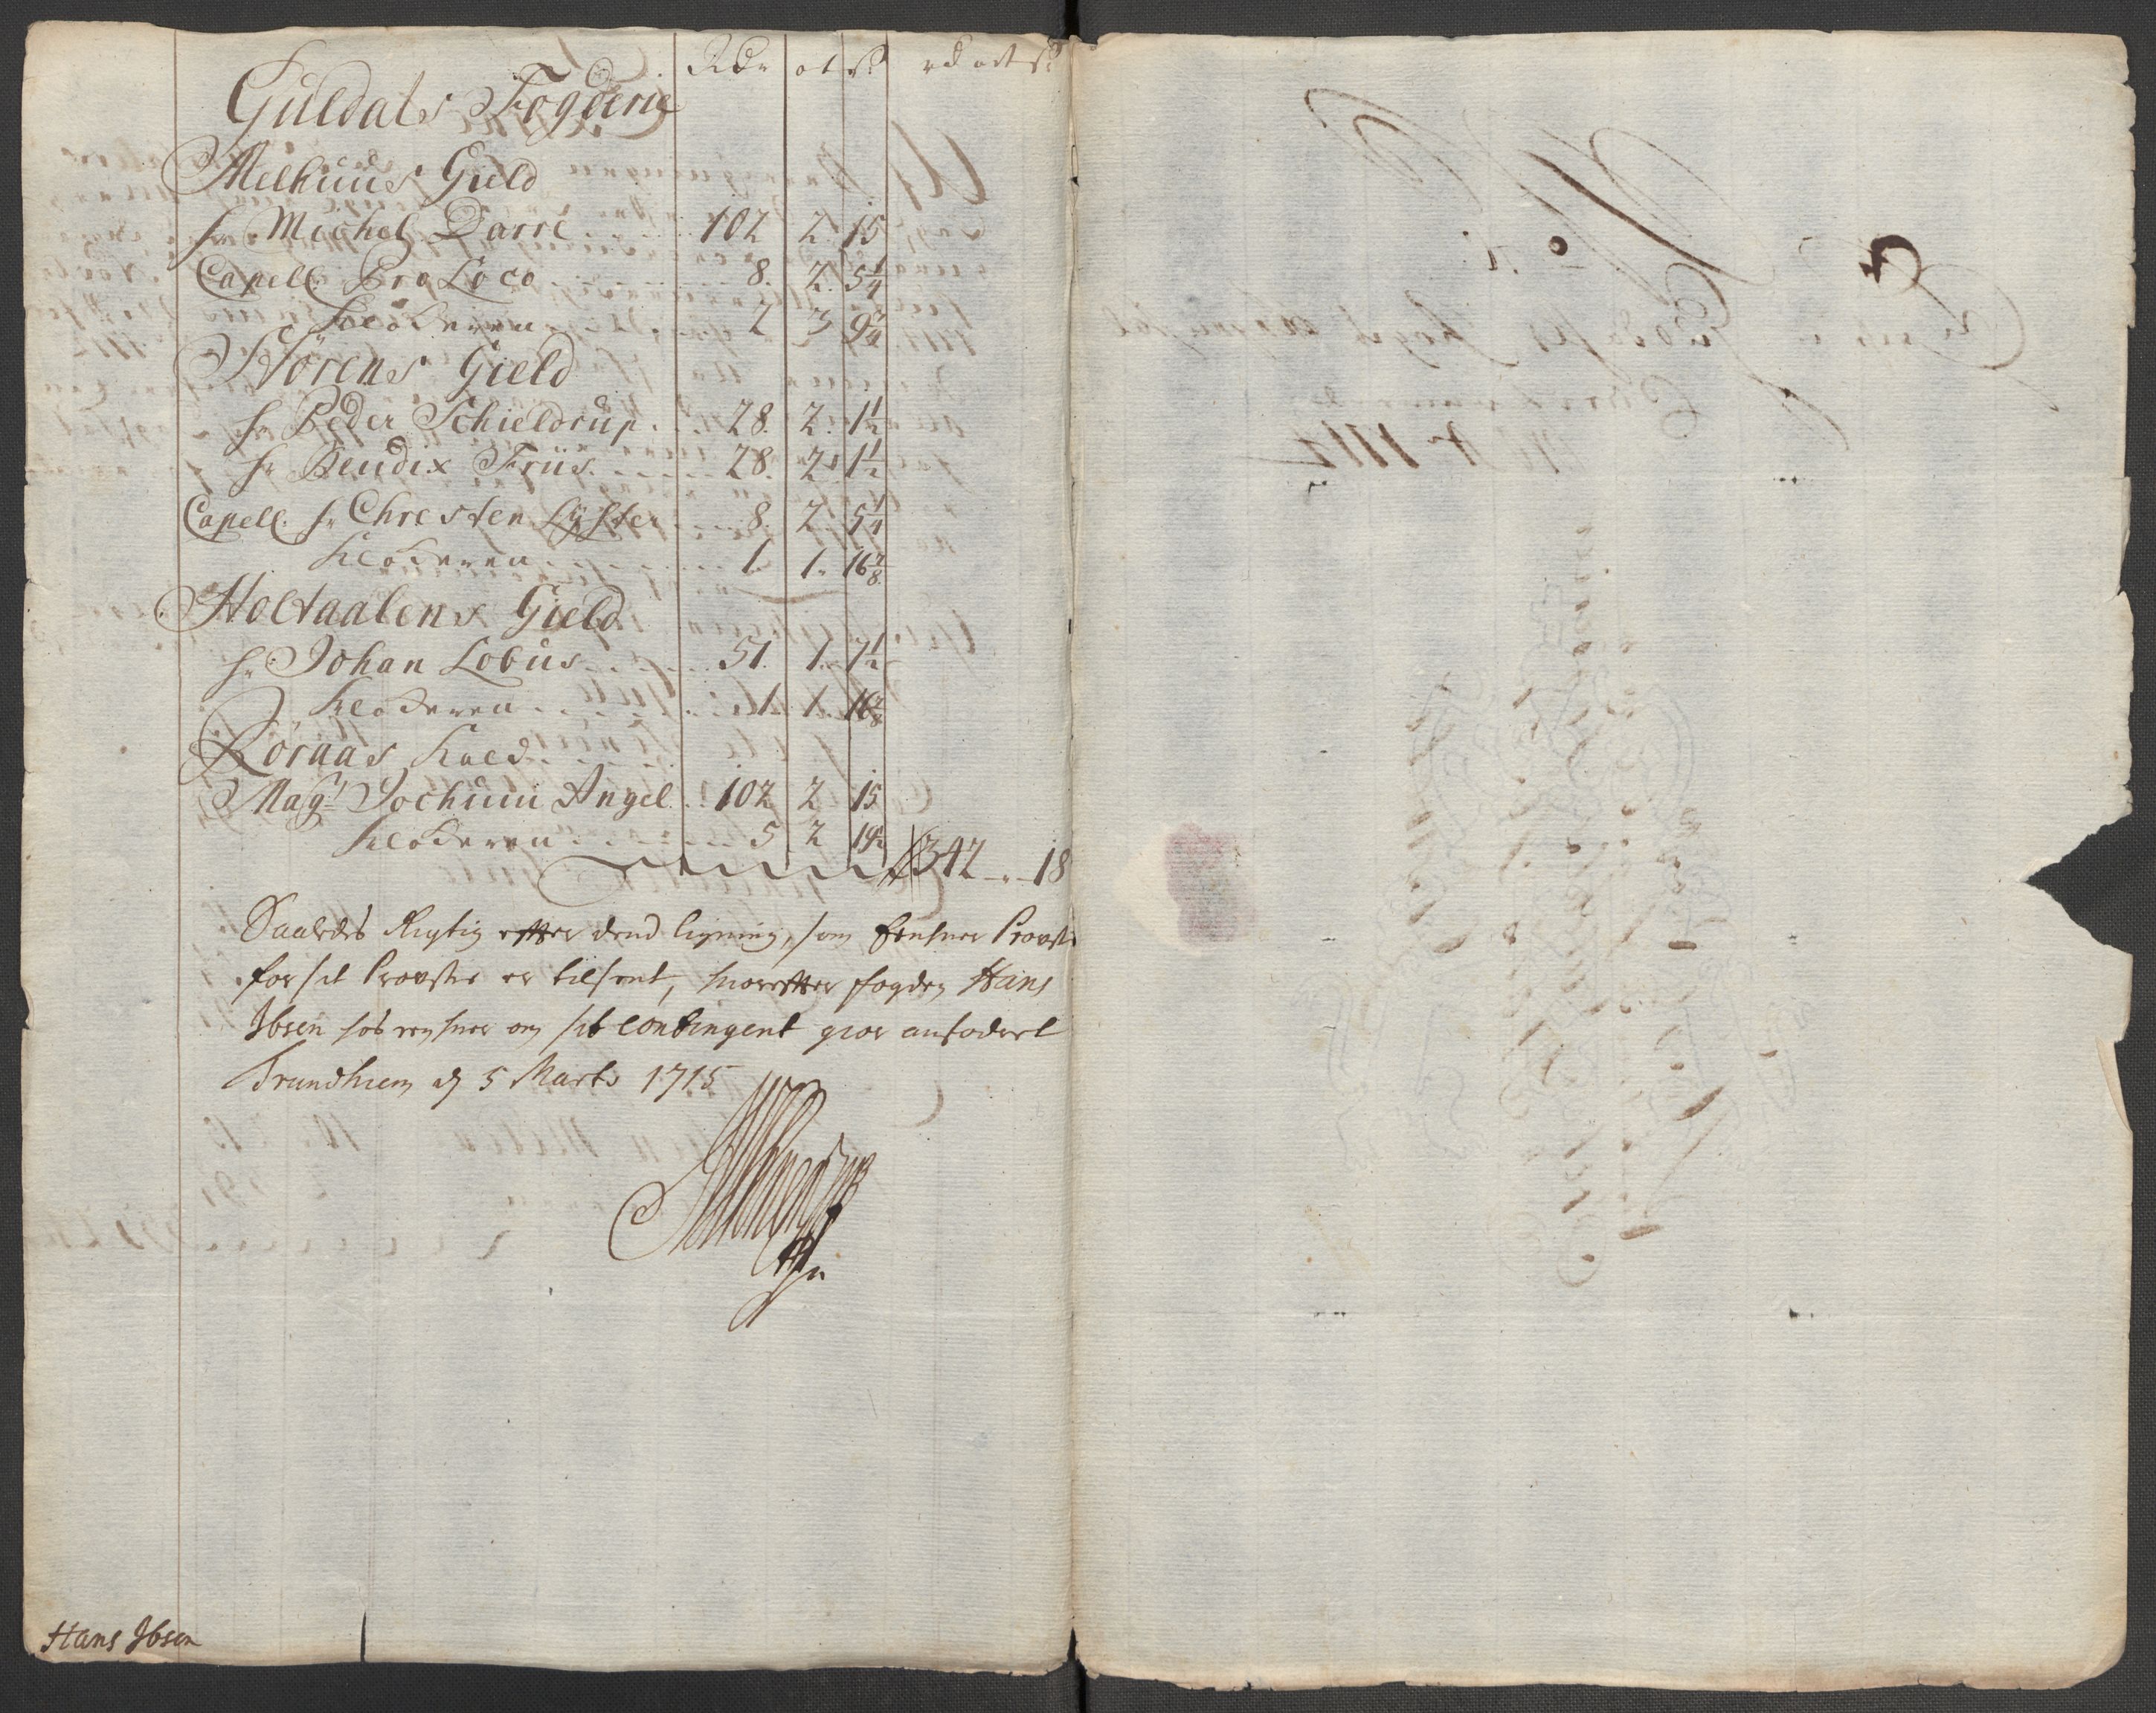 Rdr ort s rd ort s
Guldals Fogderie
Melhuus Gield
hr Michel Darre 102 2 15
Capell. Pro Loco 8 2 5 1/4
Klockeren 2 3 9 3/4
Störens Gield
hr Peder Schieldrup 28 2 1 1/2
hr Bendix Friis 28 2 1 1/2
Capell. hr Christen Lÿster 8 2 5 1/4
Klockeren 1 1 16 7/8
Holtaalens Gield
hr Johan Lobus 51 1 7 1/2
Klockeren 1 1 16 7/8
Röraas Kald
Magr Jochum Angel 102 2 15
Klockeren 5 2 19 1/2
342 - " - 18
Saaledes Rigtig efter dend ligning, som Enhver Provst
for sit Provstie er tilsent, hvorefter fogden Hans
Ibsen hos enhver om sit contingent giör anfodert
Trundhiem d 5 Marts 1715
Hans Ibsen